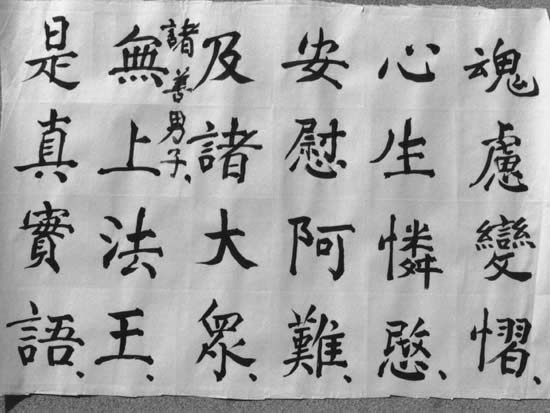 魂慮變慴、
心生憐愍、
安慰阿難、
及諸大眾、
諸善男子、
無上法王、
是真實語、